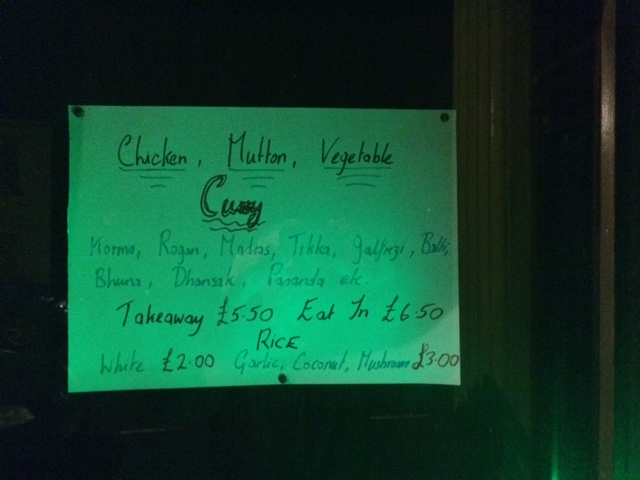 Chicken, Mutton, Vegetable
Curry
Korma, Rogan, Madras, Tikka, Jalfrezi, Balti,
Bhuna, Dhansak, Pasanda etc.
Takeaway £5.50 Eat In £6.50
RICE
White £2.00 Garlic, Coconut, Mushroom £3.00